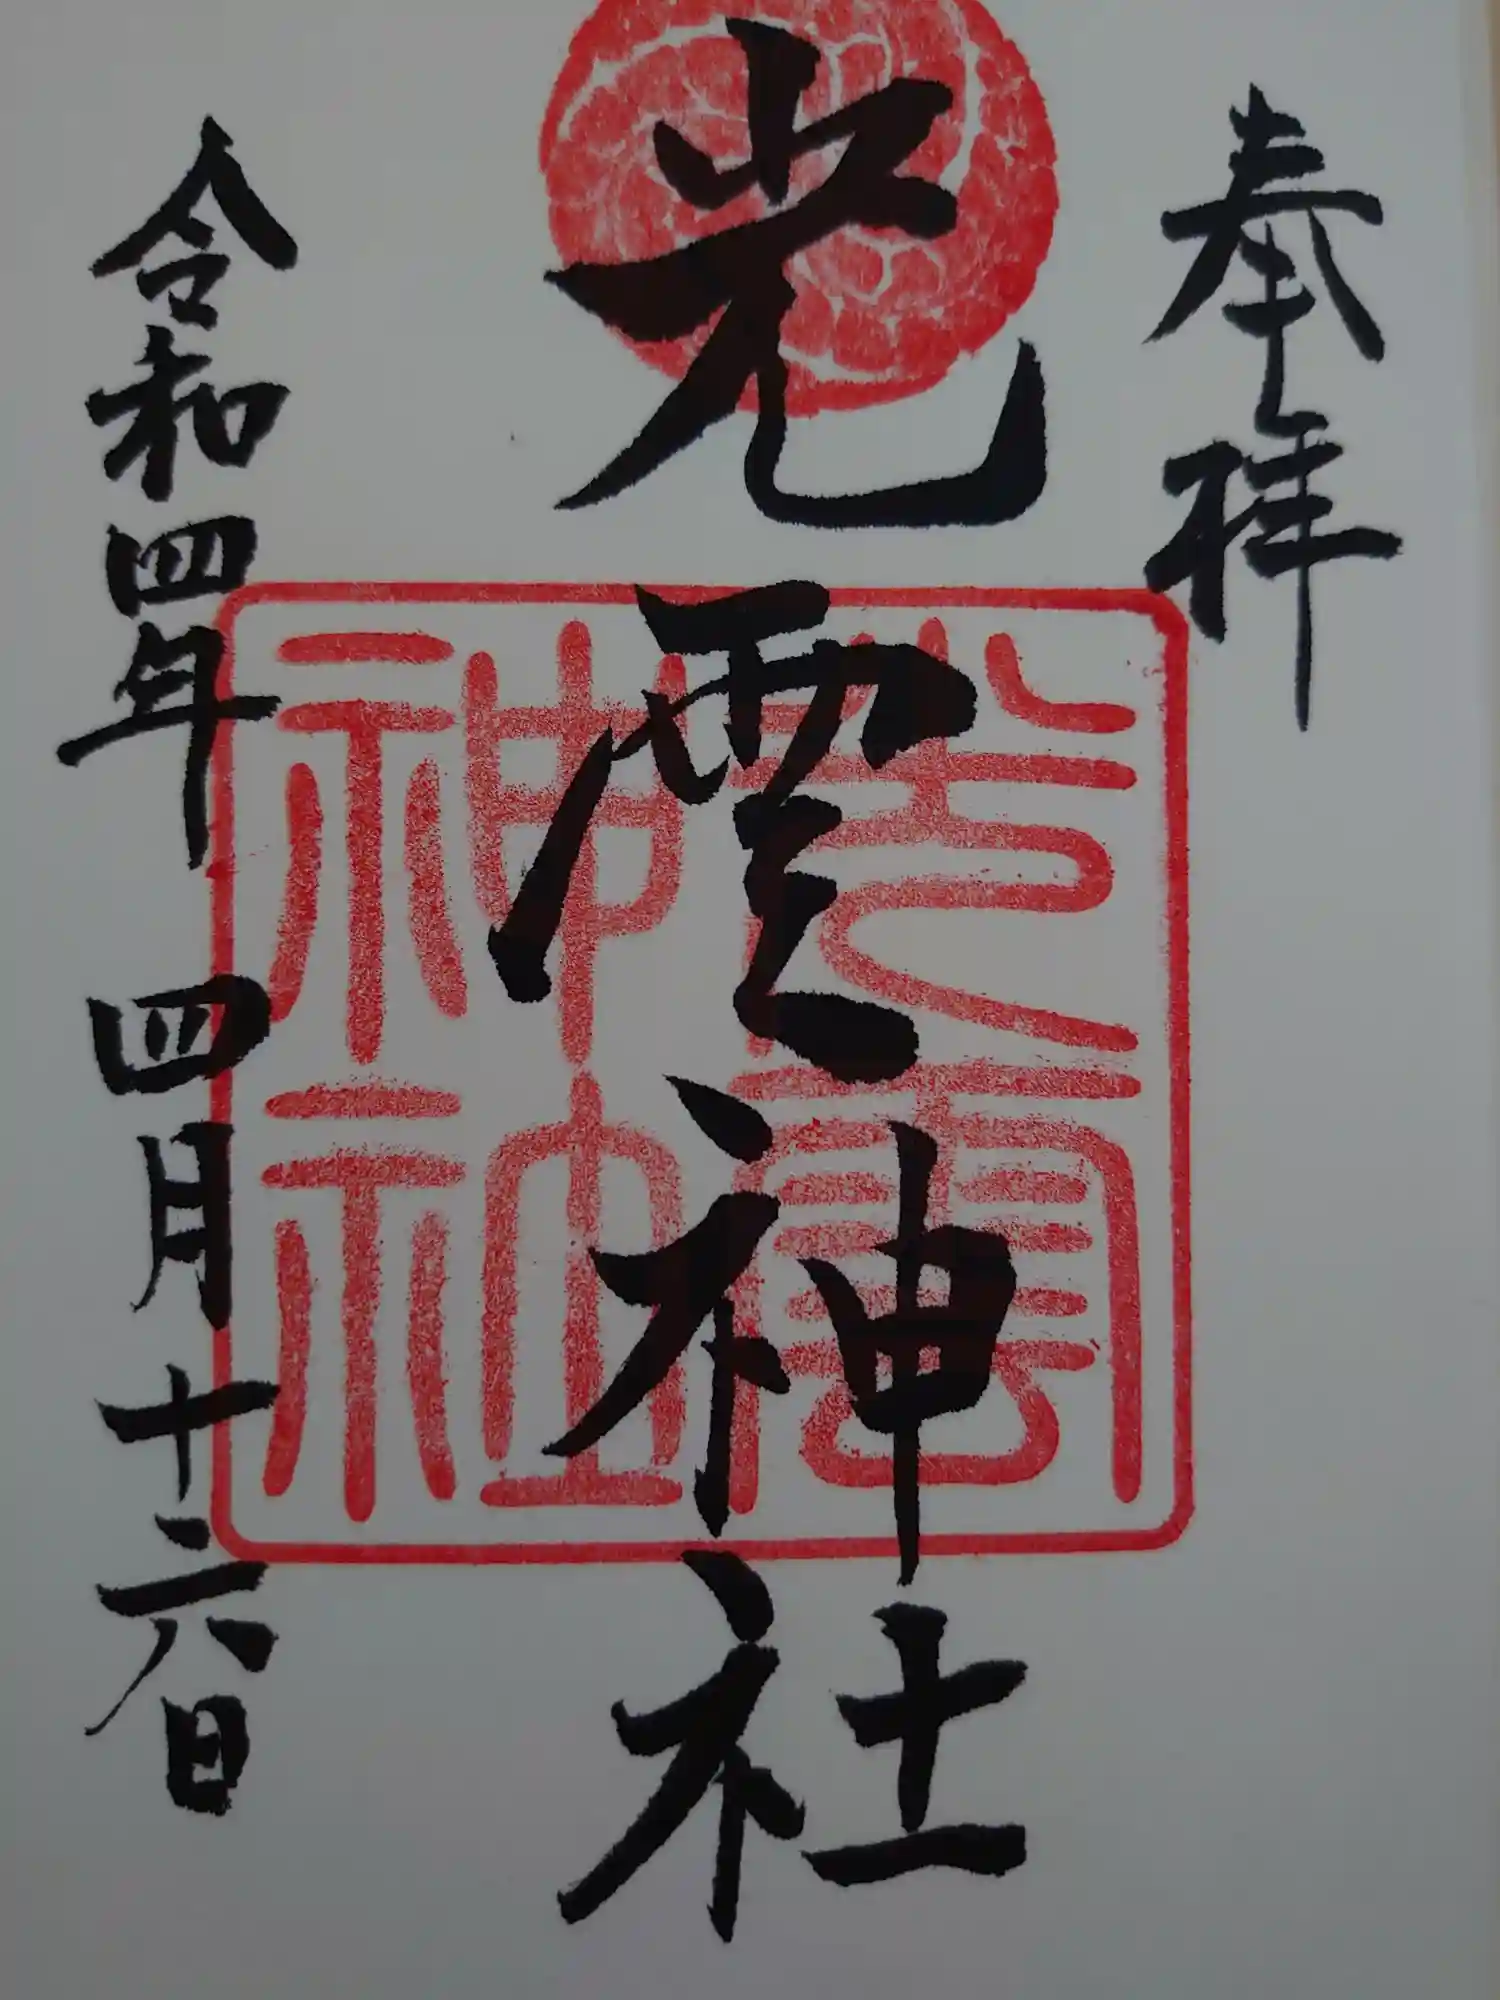 奉拝
光雲神社
令和四年 四月 十六日
光雲神社